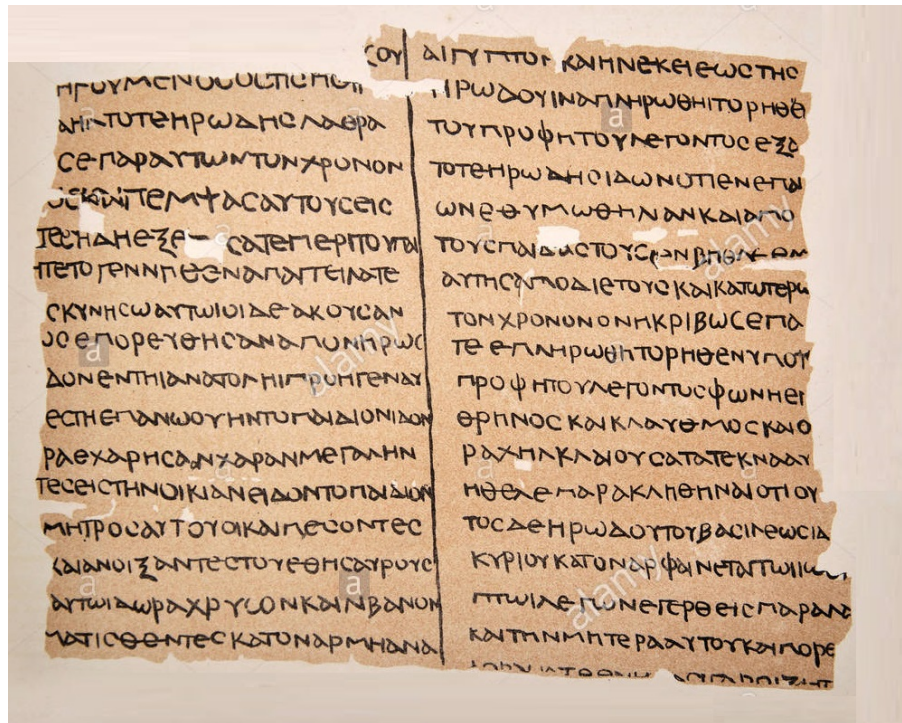 ϹΟΥ
ΗΓΟΥΜΕΝΟϹΟϹΤΙϹ
ΤΟΤΕΗΡΩΔΗϹΛΑΘΡΑ
ϹΕΠΑΡΑΥΤΩΝΤΟΝΧΡΟΝΟΝ
ΠΕΜΨΑϹΑΥΤΟΥϹΕΙϹ
ϹΑΤΕΠΕΡΙΤΟΥΠΑΙ
ΝΑΠΑΓΓΕΙΛΑΤΕ
ϹΚΥΝΗϹΩΑΥΤΩΙΟΙΔΕΑΚΟΥϹΑΝ
ΟϹΕΠΟΡΕΥΘΗϹΑΝ
ΔΟΝΕΝΤΗΙΑΝΑΤΟΛΗΙΠΡΟΗΓΕΝΑΥ
ΕϹΤΗΕΠΑΝΩΟΥΗΝΤΟΠΑΙΔΙΟΝΙΔΟΝ
ΡΑΕΧΑΡΗϹΑΝΧΑΡΑΝΜΕΓΑΛΗΝ
ΤΕϹΕΙϹΤΗΝΟΙΚΙΑΝΕΙΔΟΝΤΟΠΑΙΔΙΟΝ
ΜΗΤΡΟϹΑΥΤΟΥΟΙΚΑΙΠΕϹΟΝΤΕϹ
ΚΑΙΑΝΟΙΞΑΝΤΕϹΤΟΥϹΘΗϹΑΥΡΟΥϹ
ΑΥΤΩΙΔΩΡΑΧΡΥϹΟΝΚΑΙΛΙΒΑΝΟΝ
ΜΑΤΙϹΘΕΝΤΕϹΚΑΤΟΝΑΡΜΗΑΝΑ
ΑΙΓΥΠΤΟΝ ΚΑΙΗΝΕΚΕΙΕΩϹΤΗϹ
ΗΡΩΔΟΥΙΝΑΠΛΗΡΩΘΗΙΤΟΡΗΘΕ
ΤΟΥΠΡΟΦΗΤΟΥΛΕΓΟΝΤΟϹΕΞΑ
ΤΟΤΕΗΡΩΔΗϹΙΔΩΝΟΤΙΕΝΕΠΑΙ
ΩΝΕΘΥΜΩΘΗΛΙΑΝΚΑΙΑΠΟ
ΤΟΥϹΠΑΙΔΑϹΤΟΥϹΕΝΒΗΘΛΕΕΜ
ΑΥΤΗϹΑΠΟΔΙΕΤΟΥϹΚΑΙΚΑΤΩΤΕΡΩ
ΤΟΝΧΡΟΝΟΝΟΝΗΚΡΙΒΩϹΕΠΑ
ΤΕΕΠΛΗΡΩΘΗΤΟΡΗΘΕΝΥΠΟΥ
ΠΡΟΦΗΤΟΥΛΕΓΟΝΤΟϹΦΩΝΗΕΓ
ΘΡΗΝΟϹΚΑΙΚΛΑΥΘΜΟϹΚΑΙΟ
ΡΑΧΗΛΚΛΑΙΟΥϹΑΤΑΤΕΚΝΑΑΥ
ΗΘΕΛΕΠΑΡΑΚΛΗΘΗΝΑΙΟΤΙΟΥ
ΤΟϹΔΕΗΡΩΔΟΥΤΟΥΒΑϹΙΛΕΩϹΙΔ
ΚΥΡΙΟΥΚΑΤΟΝΑΡΦΑΙΝΕΤΑΙΤΩΙΙΩ
ΠΤΩΙΛΕΓΩΝΕΓΕΡΘΕΙϹΠΑΡΑΛΑ
ΚΑΙΤΗΝΜΗΤΕΡΑΑΥΤΟΥΚΑΙΠΟΡΕ